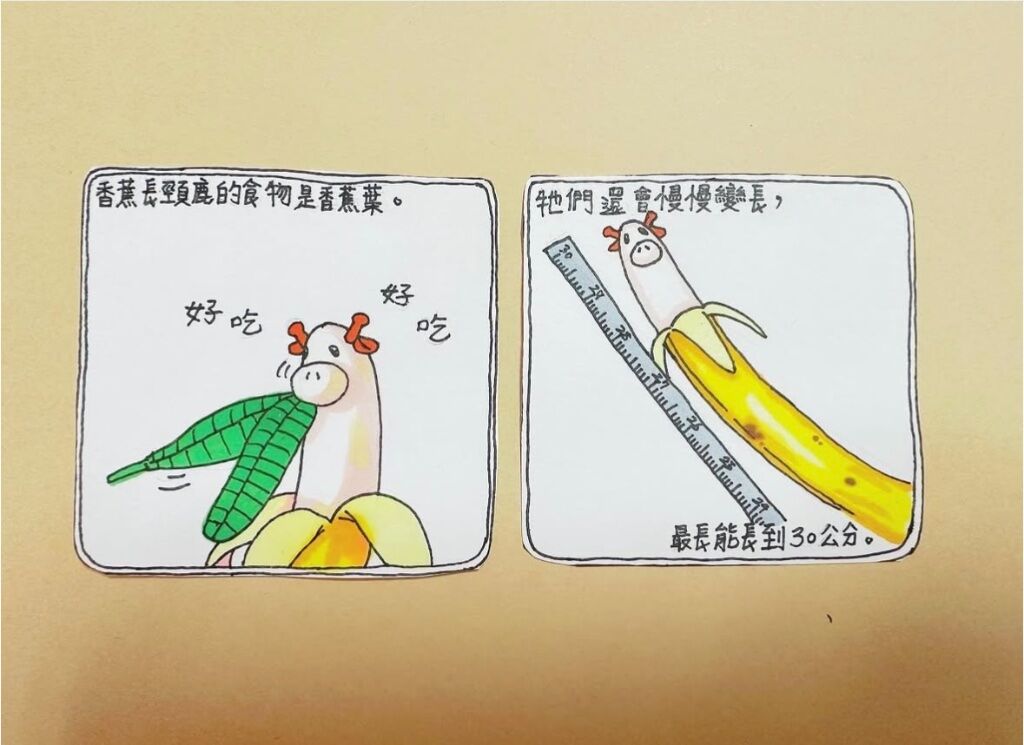 香蕉長頸鹿的食物是香蕉葉。
好吃
好吃
牠們還會慢慢變長，
30
29
28
27
26
25
24
最長能長到30公分。